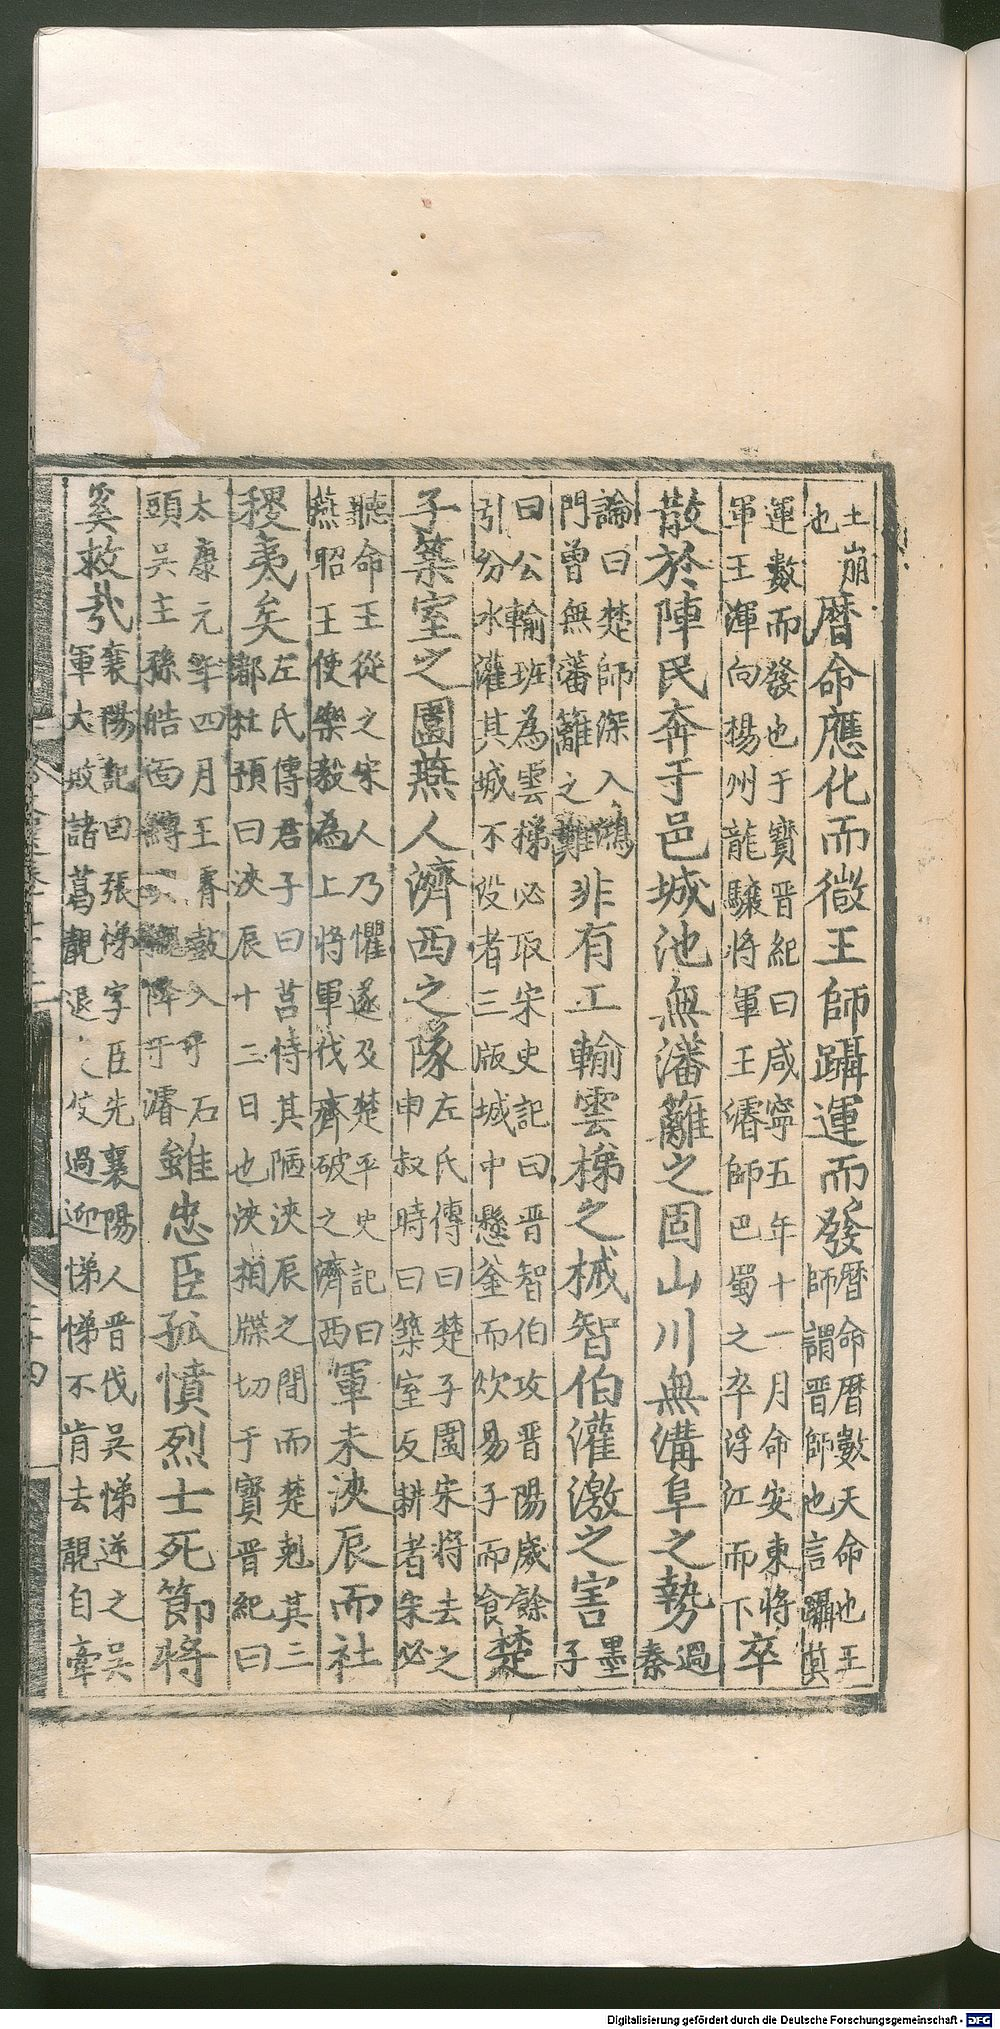 土崩
也
曆命應化而微王師躡運而發
曆命曆數天命也王
師謂晉師也言躡其
運數而發也于寶晉紀曰咸寧五年十一月命安東將
軍王渾向楊州龍驤将軍王濬師巴蜀之卒浮江而下
卒
散於陣民奔于邑城池無藩籬之固山川無溝阜之勢
過
秦
論曰楚師深入鴻
門曾無藩籬之難
非有工輸雲梯之械智伯灌激之害
墨
子
曰公輸班為雲梯必取宋史記曰晉智伯攻晉陽歲餘
引汾水灌其城不没者三版城中懸釜而炊易子而食
楚
子築室之圍燕人濟西之隊
左氏傳曰楚子圍宋将去之
申叔時曰築室反耕者宋必
聽命王從之宋人乃懼遂及楚平史記曰
燕昭王使樂毅為上将軍伐齊破之濟西
軍未浹辰而社
稷夷矣
左氏傳君子曰莒恃其陋浹辰之間而楚剋其三
都杜預曰浹辰十二日也浹相牒切于寶晉紀曰
太康元年四月王濬鼓入于石
頭吳主孫皓面縛降于濬
雖忠臣孤憤烈士死節将
奚救哉
襄陽記曰張悌字臣先襄陽人晉伐吳悌逆之吳
軍大敗諸葛靚退使過迎悌悌不肯去靚自牽
Digitalisierung gefördert durch die Deutsche Forschungsgemeinschaft - DFG